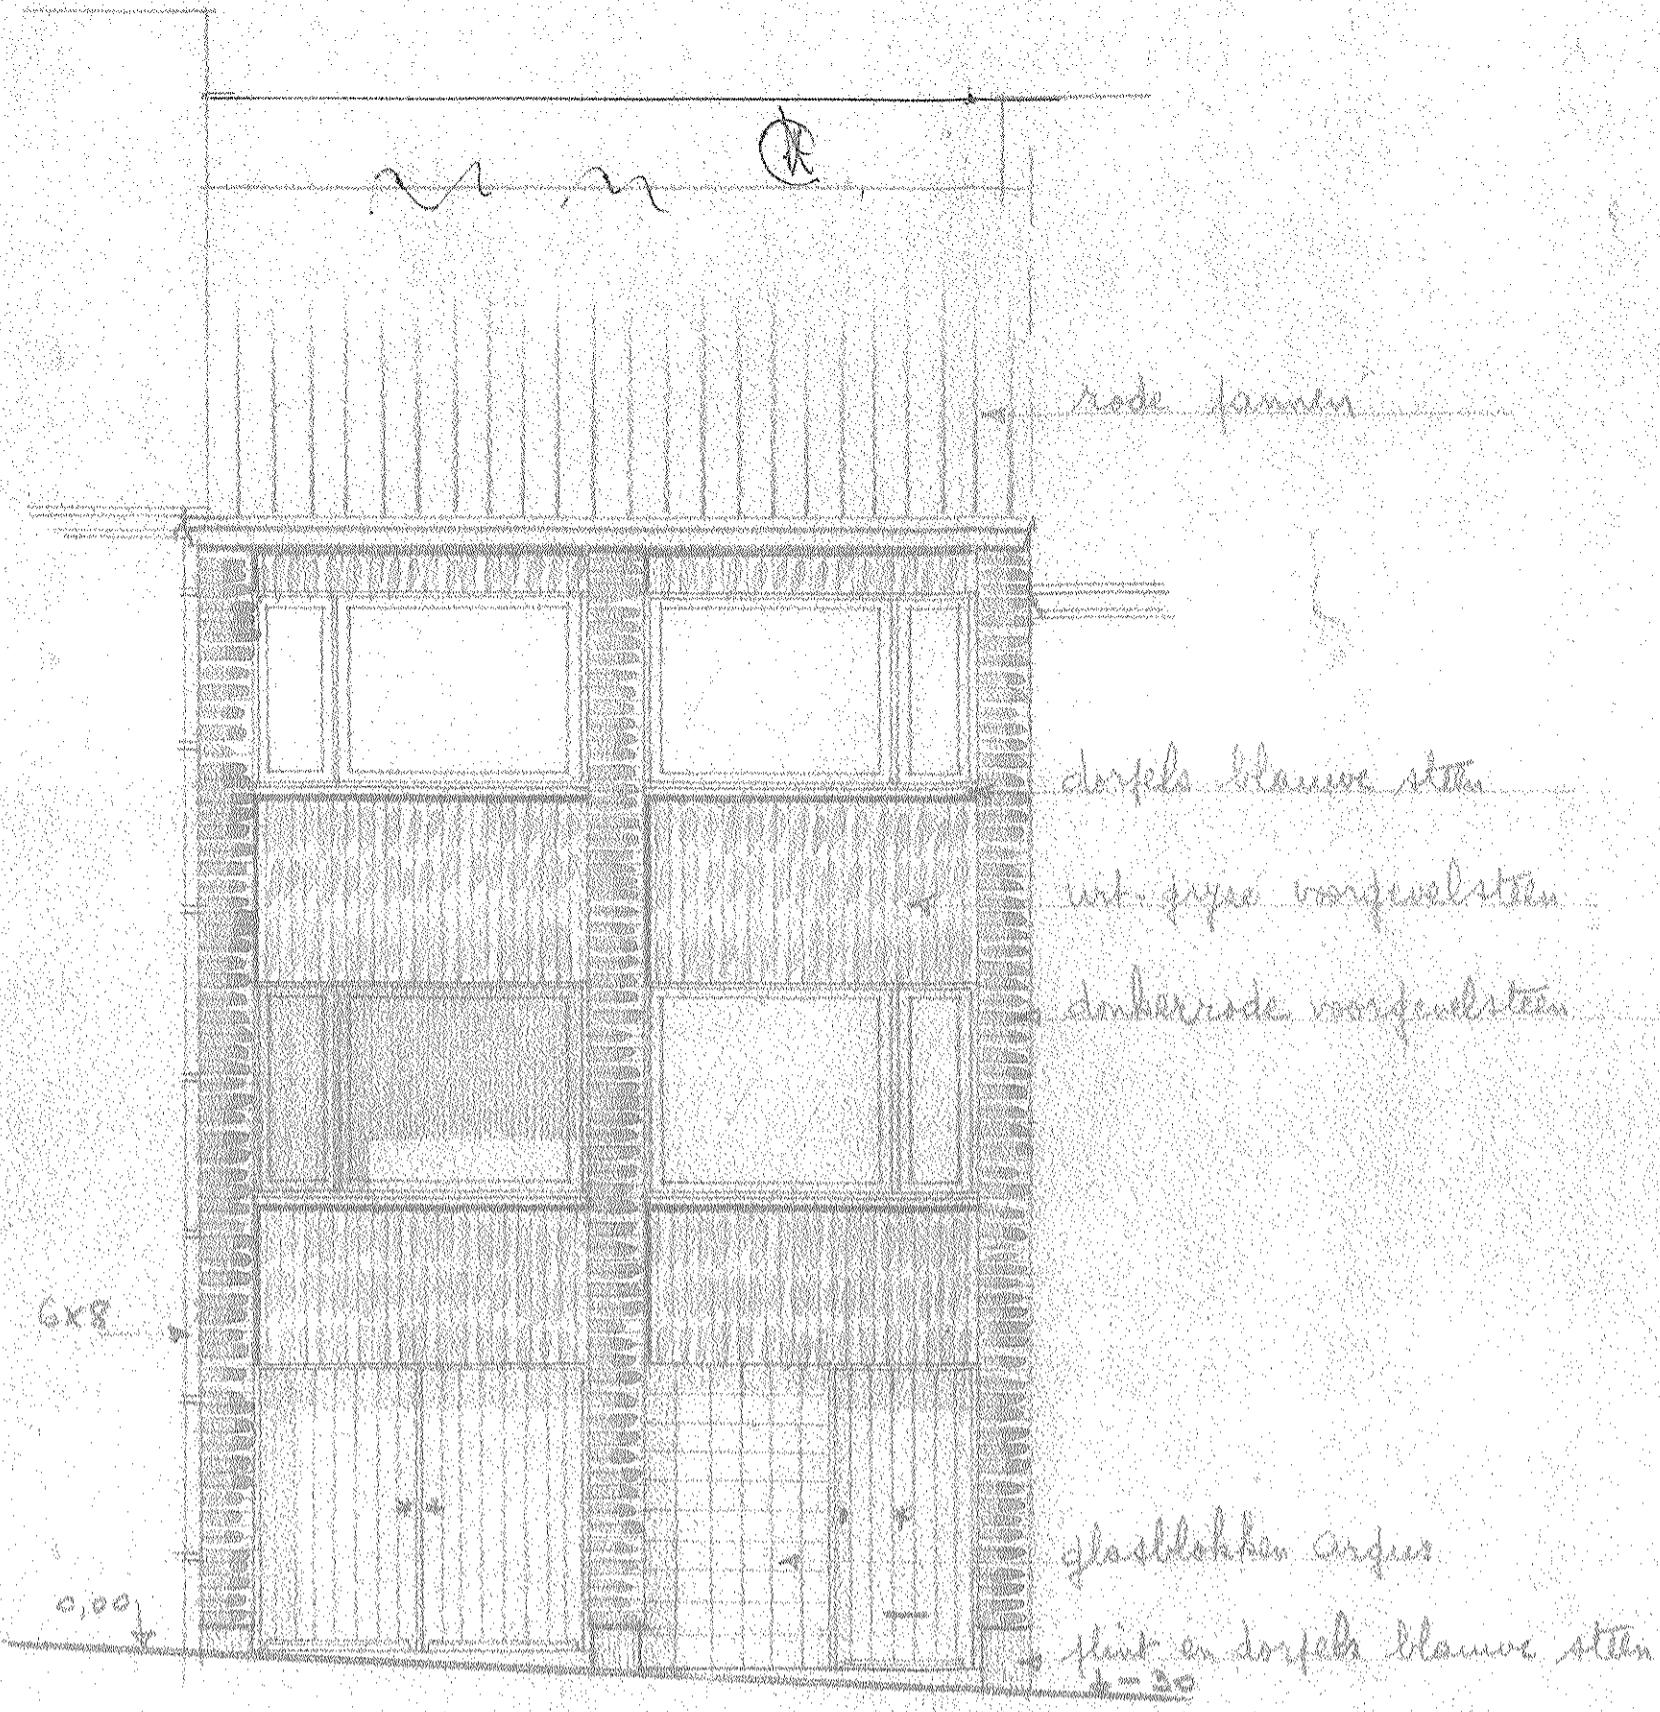 rode pannen
dorpels blauwe steen
wit-grijze voorgevelsteen
donkerrode voorgevelsteen
6x8
glasblokken Argus
0,00
plint en dorpels blauwe steen
-30